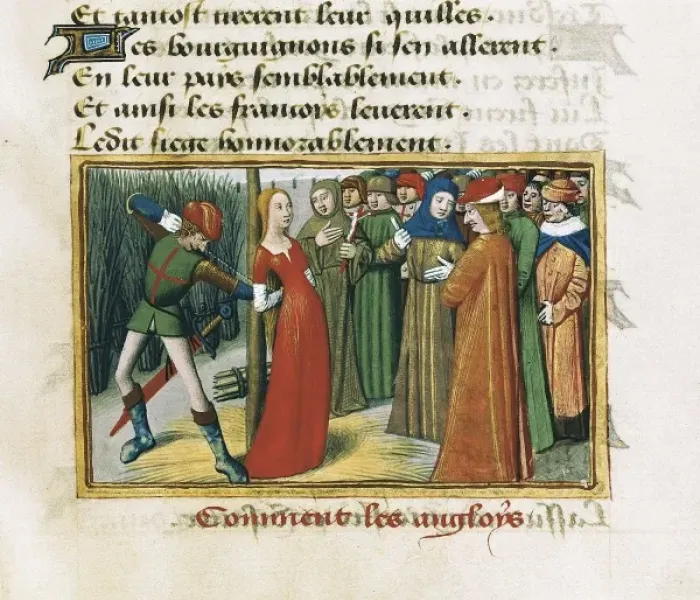 Et tantost tirerent leur quilles.
Les bourguignons si sen allerent.
En leur pays semblablement.
Et ainsi les francoys leuerent.
Ledit siege honnorablement.
Comment les angloys